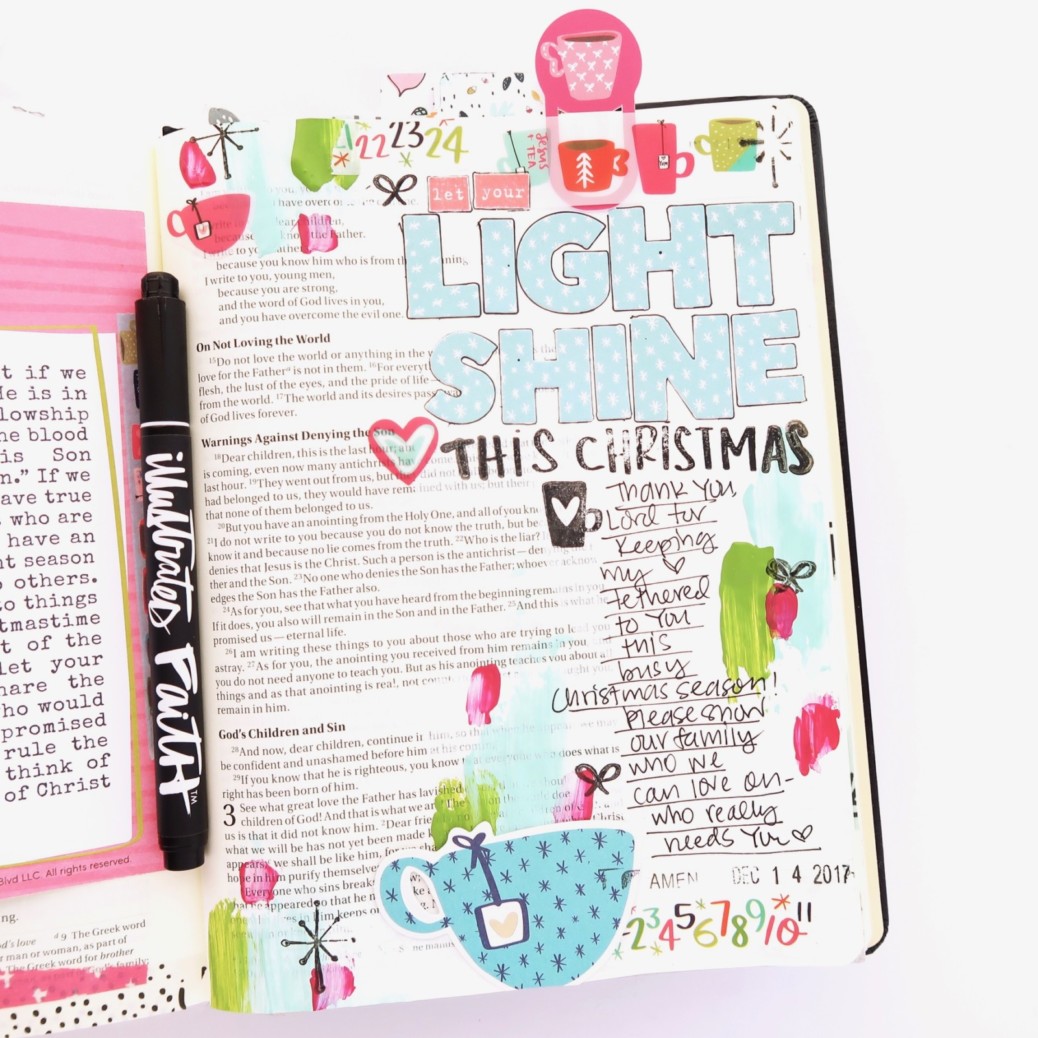 22 23 24
Jesus
+ TEA
let your
LIGHT
SHINE
THIS CHRISTMAS
Thank You
Lord for
Keeping
my ♡
tethered
to You
this
busy
Christmas season!
Please show
our family
who we
can love on-
who really
needs You ♡
AMEN DEC 14 2017
2 3 4 5 6 7 8 9 10 11
have overcome the
dear children,
because you know the Father.
because you know him who is from the
I write to you, young men,
because you are strong,
and the word of God lives in you,
and you have overcome the evil one.
On Not Loving the World
15Do not love the world or anything in the
love for the Father is not in them. 16For
flesh, the lust of the eyes, and the pride of life
from the world. 17The world and its desires pass
of God lives forever.
Warnings Against Denying the Son
18Dear children, this is the last hour;
is coming, even now many antichrists
last hour. 19They went out from us, but
had belonged to us, they would have
that none of them belonged to us.
20But you have an anointing from the Holy One, and all of you
21I do not write to you because you do not know the truth, but
know it and because no lie comes from the truth. 22Who is the liar?
denies that Jesus is the Christ. Such a person is the antichrist —
ther and the Son. 23No one who denies the Son has the Father; whoever
edges the Son has the Father also.
24As for you, see that what you have heard from the beginning remains in you.
If it does, you also will remain in the Son and in the Father. 25And this is what he
promised us — eternal life.
26I am writing these things to you about those who are trying to lead you
astray. 27As for you, the anointing you received from him remains in you
you do not need anyone to teach you. But as his anointing teaches you about all
things and as that anointing is real, not
remain in him.
God's Children and Sin
28And now, dear children, continue in him, so
be confident and unashamed before him at his coming.
29If you know that he is righteous, you know that everyone who does what is
right has been born of him.
3 See what great love the Father has lavished
children of God! And that is what we are! The
us is that it did not know him. 2Dear
what we will be has not yet been made
appears, we shall be like him, for
hope in him purify themselves
Everyone who sins breaks
that he appeared so that he
in him keeps
illustrated FAITH™
t if we
He is in
lowship
he blood
is Son
n." If we
ave true
who are
have an
nt season
others.
to things
tmastime
t of the
let your
hare the
ho would
promised
rule the
think of
of Christ
Blvd LLC. All rights reserved.
ng.
d's love d9 The Greek word
r man or woman, as part of
The Greek word for brother
God's family;